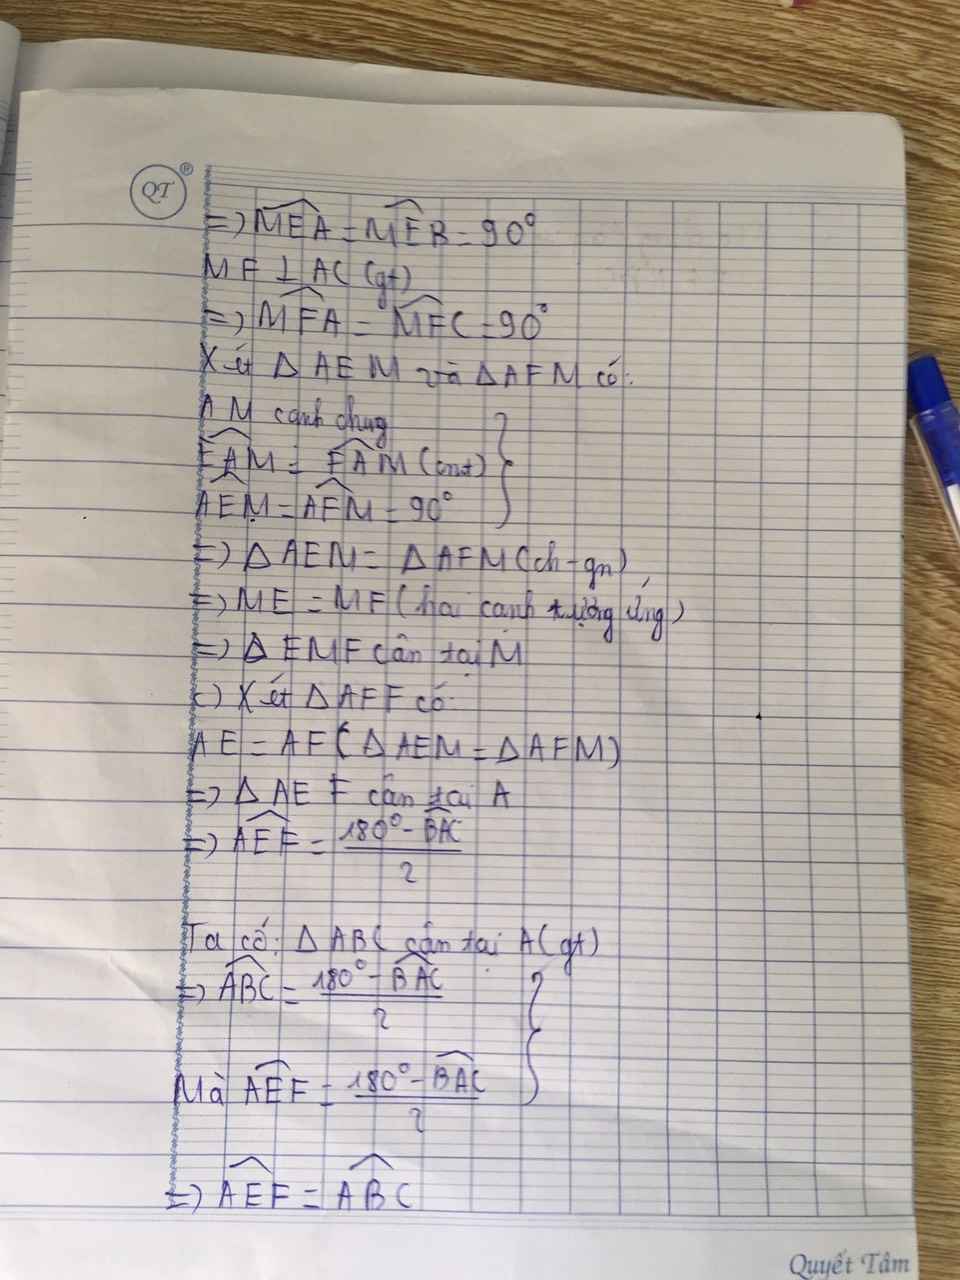 QT ®
=) MEA = MEB = 90°
MF ⊥ AC (gt)
=) MFA = MFC = 90°
Xét Δ AEM và Δ AFM có:
AM cạnh chung
EAM = FAM (cmt)
AEM = AFM = 90°
=) Δ AEM = Δ AFM (ch - gn)
=) ME = MF (hai cạnh tương ứng)
=) Δ EMF cân tại M
c) Xét Δ AEF có:
AE = AF (Δ AEM = Δ AFM)
=) Δ AEF cân tại A
=) AEF = (180° - BAC) / 2
Ta có: Δ ABC cân tại A (gt)
=) ABC = (180° - BAC) / 2
Mà AEF = (180° - BAC) / 2
=) AEF = ABC
Quyết Tâm